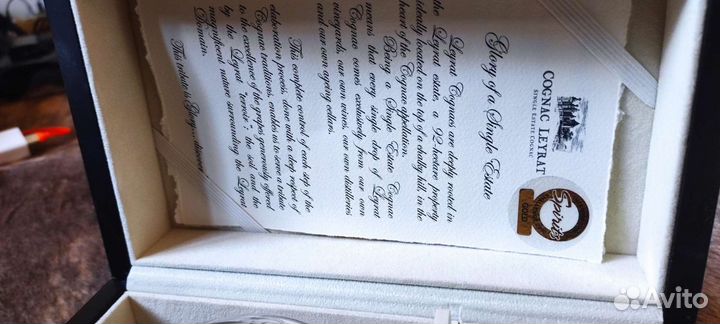 COGNAC LEYRAT
SINGLE ESTATE COGNAC
Spirits
GOLD
Glory of a Single Estate
Leyrat Cognacs are deeply rooted in
the Leyrat estate, a 92-hectare property
ideally located on the top of a chalky hill, in the
heart of the Cognac appellation.
Being a Single Estate Cognac
means that every single drop of Leyrat
Cognac comes exclusively from our own
vineyards, our own wines, our own distilleries
and our own ageing cellars.
This complete control of each step of the
elaboration process, done with a deep respect of
Cognac traditions, enables us to serve a tribute
to the excellence of the grapes generously offered
by the Leyrat "terroir", the soil and the
magnificent nature surrounding the Leyrat
Domain.
This tribute is Glory...
Avito